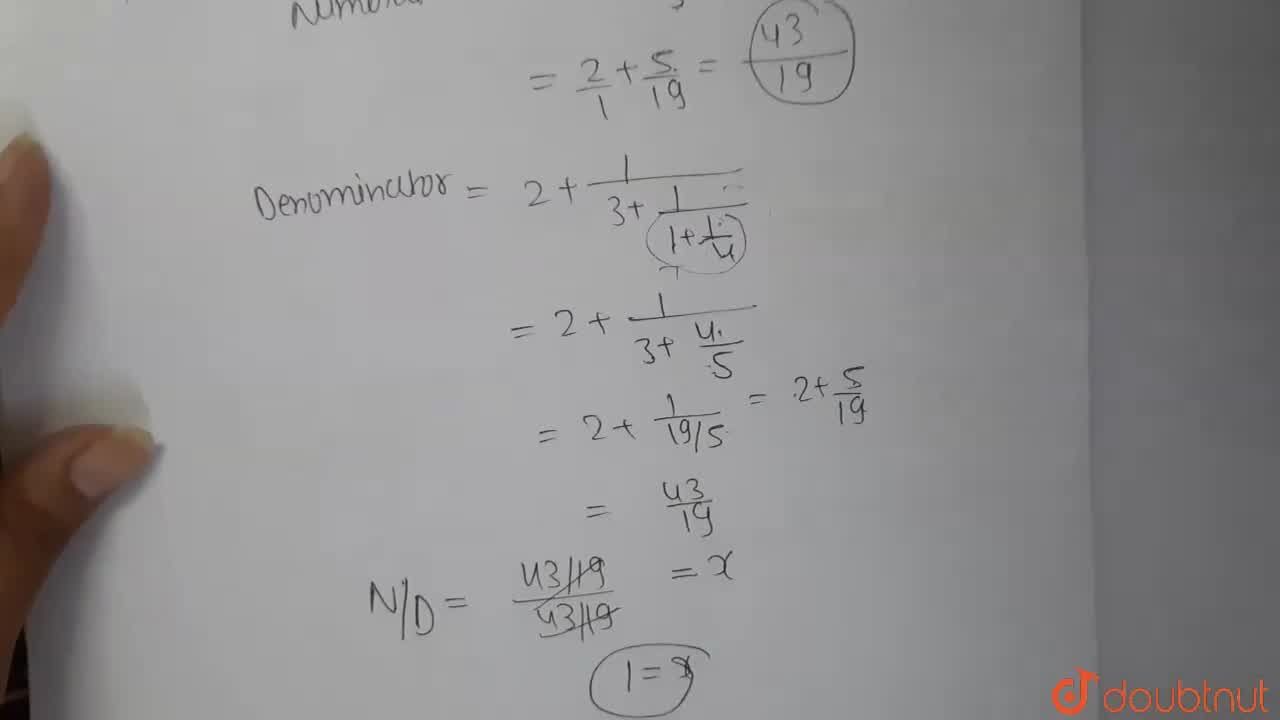 = 2/1 + 5/19 = 43/19
Denominator = 2 + 1/(3 + 1/(1 + 1/4))
= 2 + 1/(3 + 4/5)
= 2 + 1/(19/5) = 2 + 5/19
= 43/19
N/D = (43/19)/(43/19) = x
1 = x
doubtnut